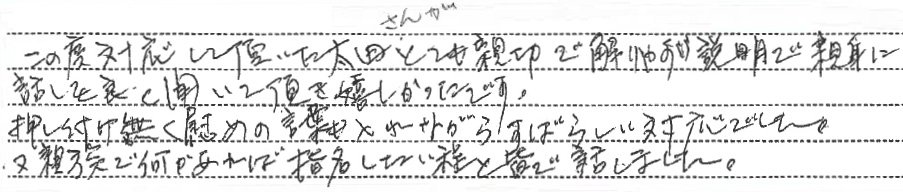 さんが
この度対応して頂いた太田とても親切で解りやすい説明で親身に
話しを良く聞いて頂き嬉しかったです。
押し付け無く慰めの言葉もとすばらしい対応でした。
又親族で何かあれば指名したい程と皆で話しました。